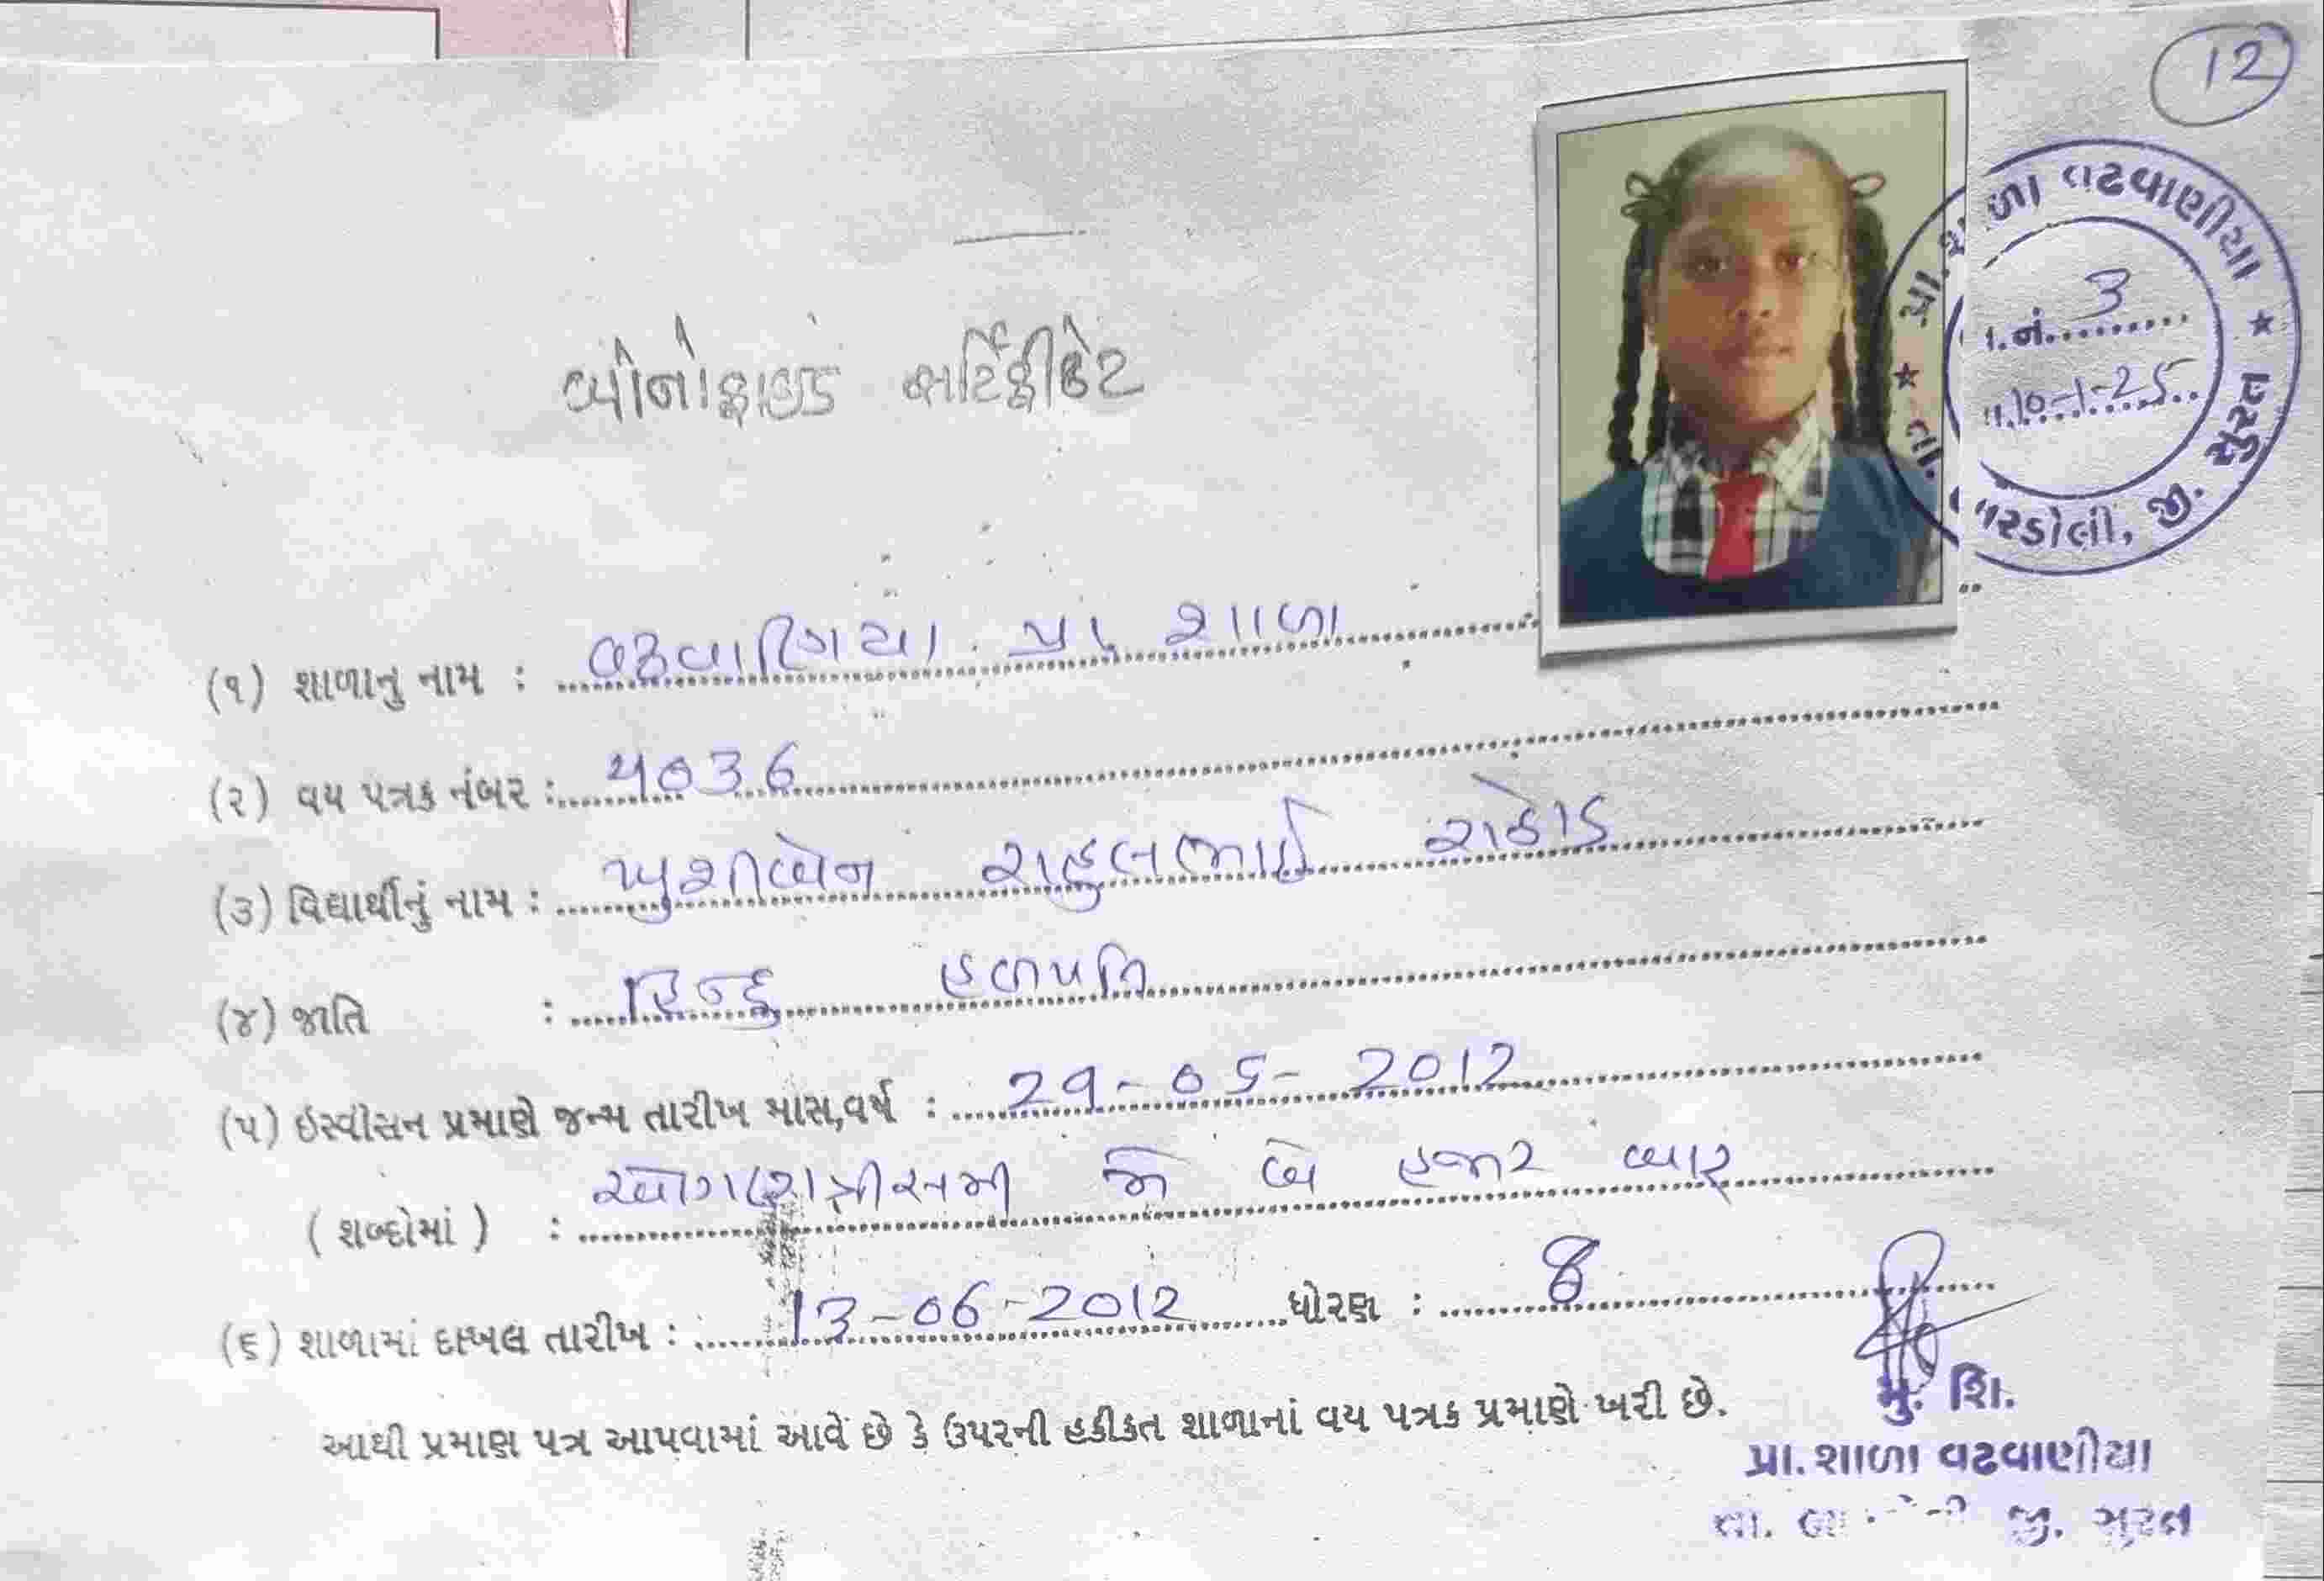 12
પ્રા.શાળા વઢવાણીયા ★
તા. બારડોલી, જી. સુરત ★
જા.નં. 3
તા.10-1-25
બોનોફાઇડ સર્ટિફીકેટ
(૧) શાળાનુ નામ : વઢવાણિયા. પ્રા. શાળા
(૨) વય પત્રક નંબર : 4036
(૩) વિદ્યાર્થીનું નામ : ખુશીબેન રાહુલભાઈ રાઠોડ
(૪) જાતિ : હિન્દુ હળપતિ
(૫) ઇસ્વીસન પ્રમાણે જન્મ તારીખ માસ,વર્ષ : 29-05-2012
( શબ્દોમાં ) : ઓગણત્રીસમી મે બે હજાર બાર
(૬) શાળામાં દાખલ તારીખ : 13-06-2012 ધોરણ : 8
આથી પ્રમાણ પત્ર આપવામાં આવે છે કે ઉપરની હકીકત શાળાનાં વય પત્રક પ્રમાણે ખરી છે.
મુ. શિ.
પ્રા. શાળા વઢવાણીયા
તા. બારડોલી જી. સુરત